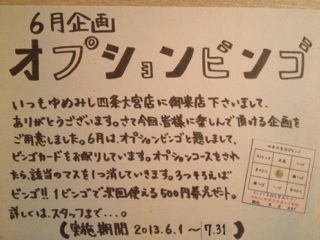 6月企画
オプションビンゴ
いつもゆめみし四条大宮店に御来店下さいまして、
ありがとうございます。さて今回皆様に楽しんで頂ける企画を
ご用意しました。6月は、オプションビンゴと題しまして、
ビンゴカードをお配りしています。オプションコースをされ
たら、該当のマスを1つ消していきます。3つそろえば
ビンゴ!!1ビンゴで次回使える500円券プレゼント。
詳しくは、スタッフまで...。
(実施期間 2013.6.1～7.31)